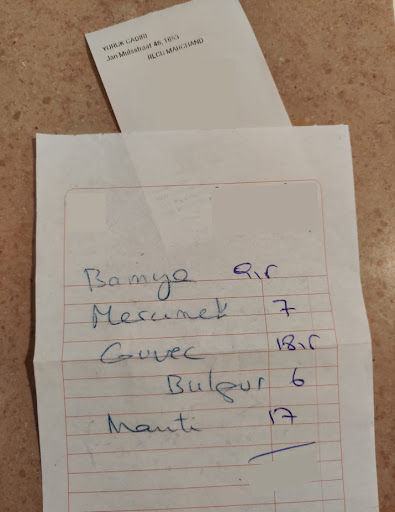 YORUK CADIRI
Jan Mulsstraat 46, 1853
RLEU MARCHAND
Bamya 9,5
Mercimek 7
Guvec 18,5
Bulgur 6
Manti 17